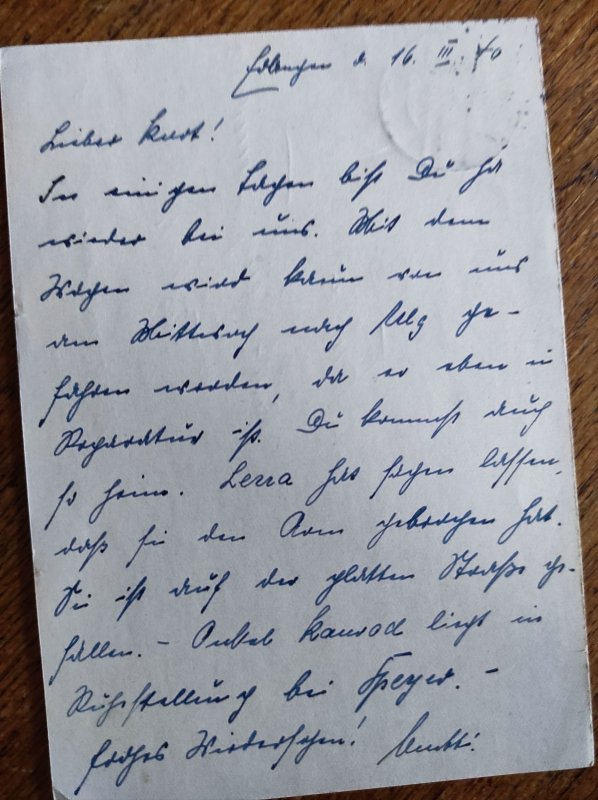 Erlangen d. 16. III. 40
Lieber Kurt!
In einigen Tagen bist Du ja
wieder bei uns. Mit dem
Wagen wird kaum von uns
am Mittwoch nach Nbg ge-
fahren werden, da er eben in
Reparatur ist. Du kommst auch
so heim. Lena hat sagen lassen,
daß sie den Arm gebrochen hat.
Sie ist auf der glatten Straße ge-
fallen. – Onkel Konrad liegt in
Ruhestellung bei Speyer. –
Frohes Wiedersehen! Mutti.